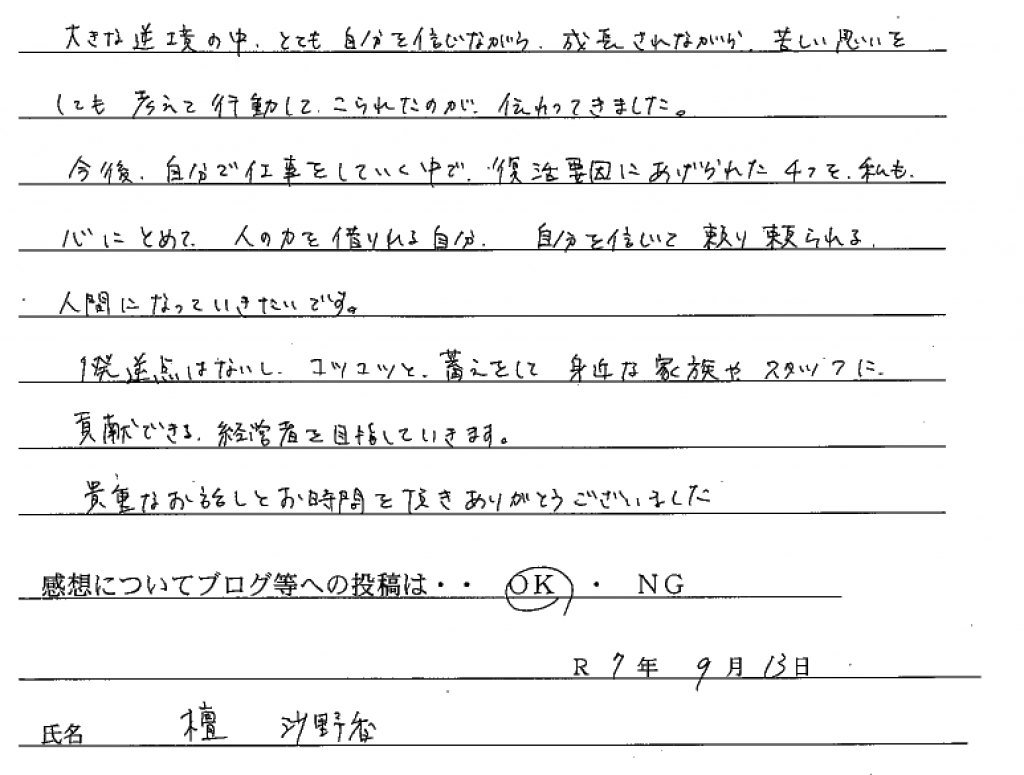 大きな逆境の中、とても自分を信じながら、成長されながら、苦しい思いを
しても考えて行動して、こられたのが、伝わってきました。
今後、自分で仕事をしていく中で、復活要因にあげられた4つを、私も、
心にとめて、人の力を借りれる自分、自分を信じて頼り頼られる、
人間になっていきたいです。
1発逆点はないし、コツコツと、蓄えをして身近な家族やスタッフに、
貢献できる、経営者を目指していきます。
貴重なお話しとお時間を頂きありがとうございました
感想についてブログ等への投稿は・・ OK ・ NG
R 7年 9月 13日
氏名 檀 沙野香